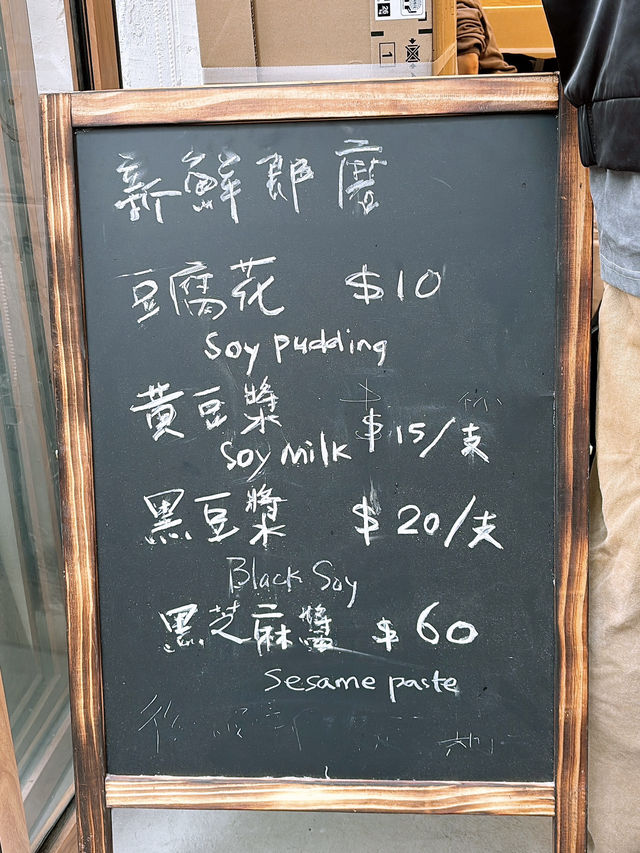 新鮮即磨
豆腐花 $10
Soy pudding
黃豆漿 $15/支
Soy Milk
黑豆漿 $20/支
Black Soy
黑芝麻醬 $60
Sesame paste